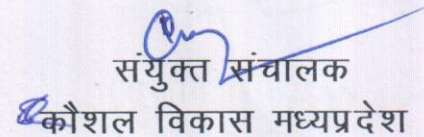 संयुक्त संचालक
कौशल विकास मध्यप्रदेश